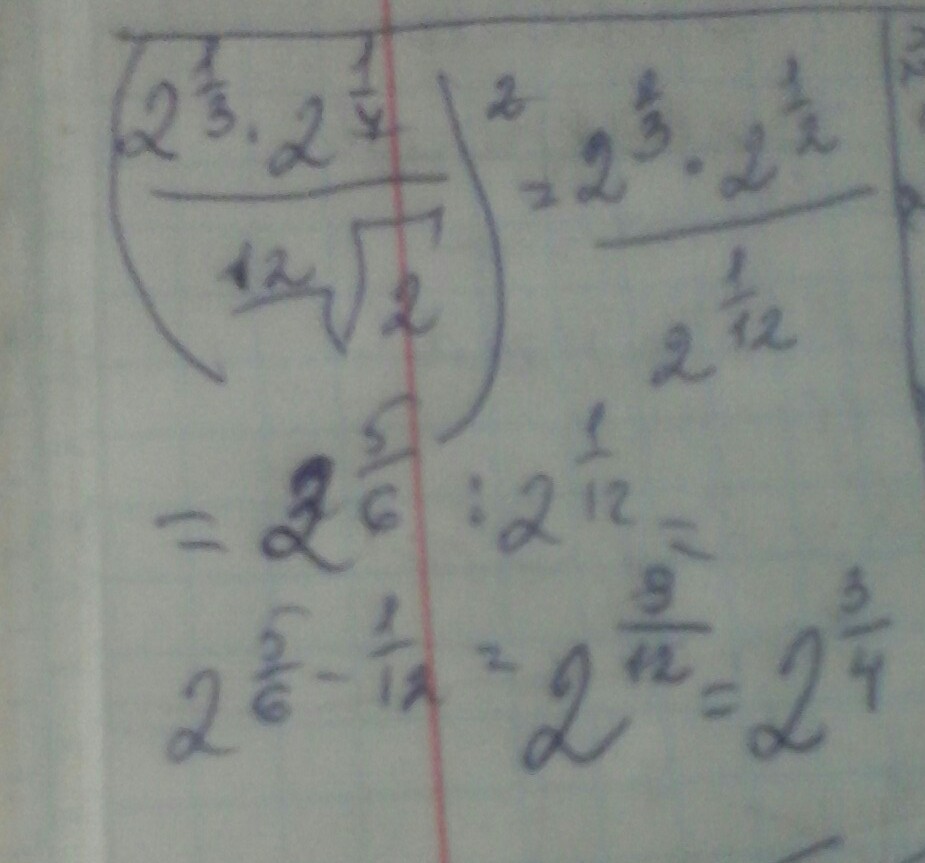 (2^{1/3} · 2^{1/4} / ¹²√2)² = 2^{1/3} · 2^{1/2} / 2^{1/12}
= 2^{5/6} : 2^{1/12} =
2^{5/6 - 1/12} = 2^{9/12} = 2^{3/4}